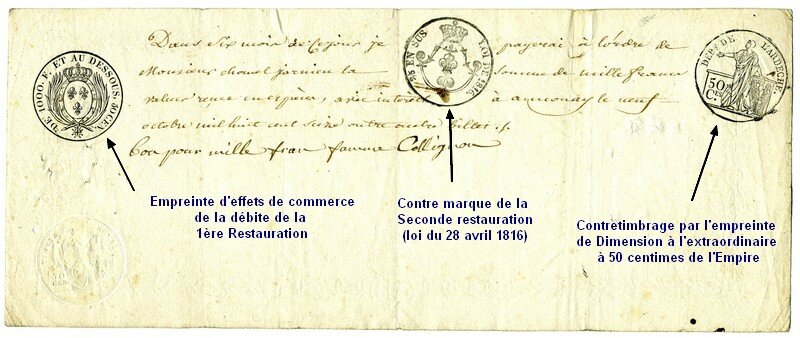 DE 1000. F. ET AU DESSOUS. 50 CEN.
25 EN SUS LOI DE 1816
DEPT DE L'ARDECHE
50 C.
Dans six mois de ce jour je payerai à l'ordre de
Monsieur chomel jarnieu la somme de mille francs
valeur reçue en espèces, avec intérêt à annonay le neuf
octobre mil huit cent seize
bon pour mille fran femme Collignon
Empreinte d'effets de commerce
de la débite de la
1ère Restauration
Contre marque de la
Seconde restauration
(loi du 28 avril 1816)
Contretimbrage par l'empreinte
de Dimension à l'extraordinaire
à 50 centimes de l'Empire